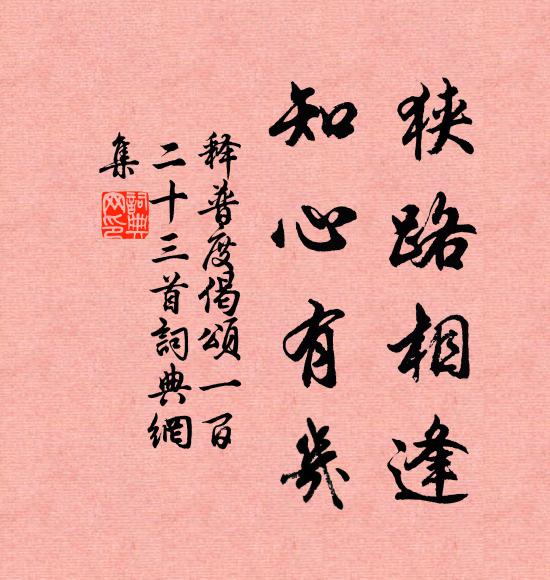 狭路相逢
知心有几
释普度偈颂一百
二十三首詞典網
集
詞典網印